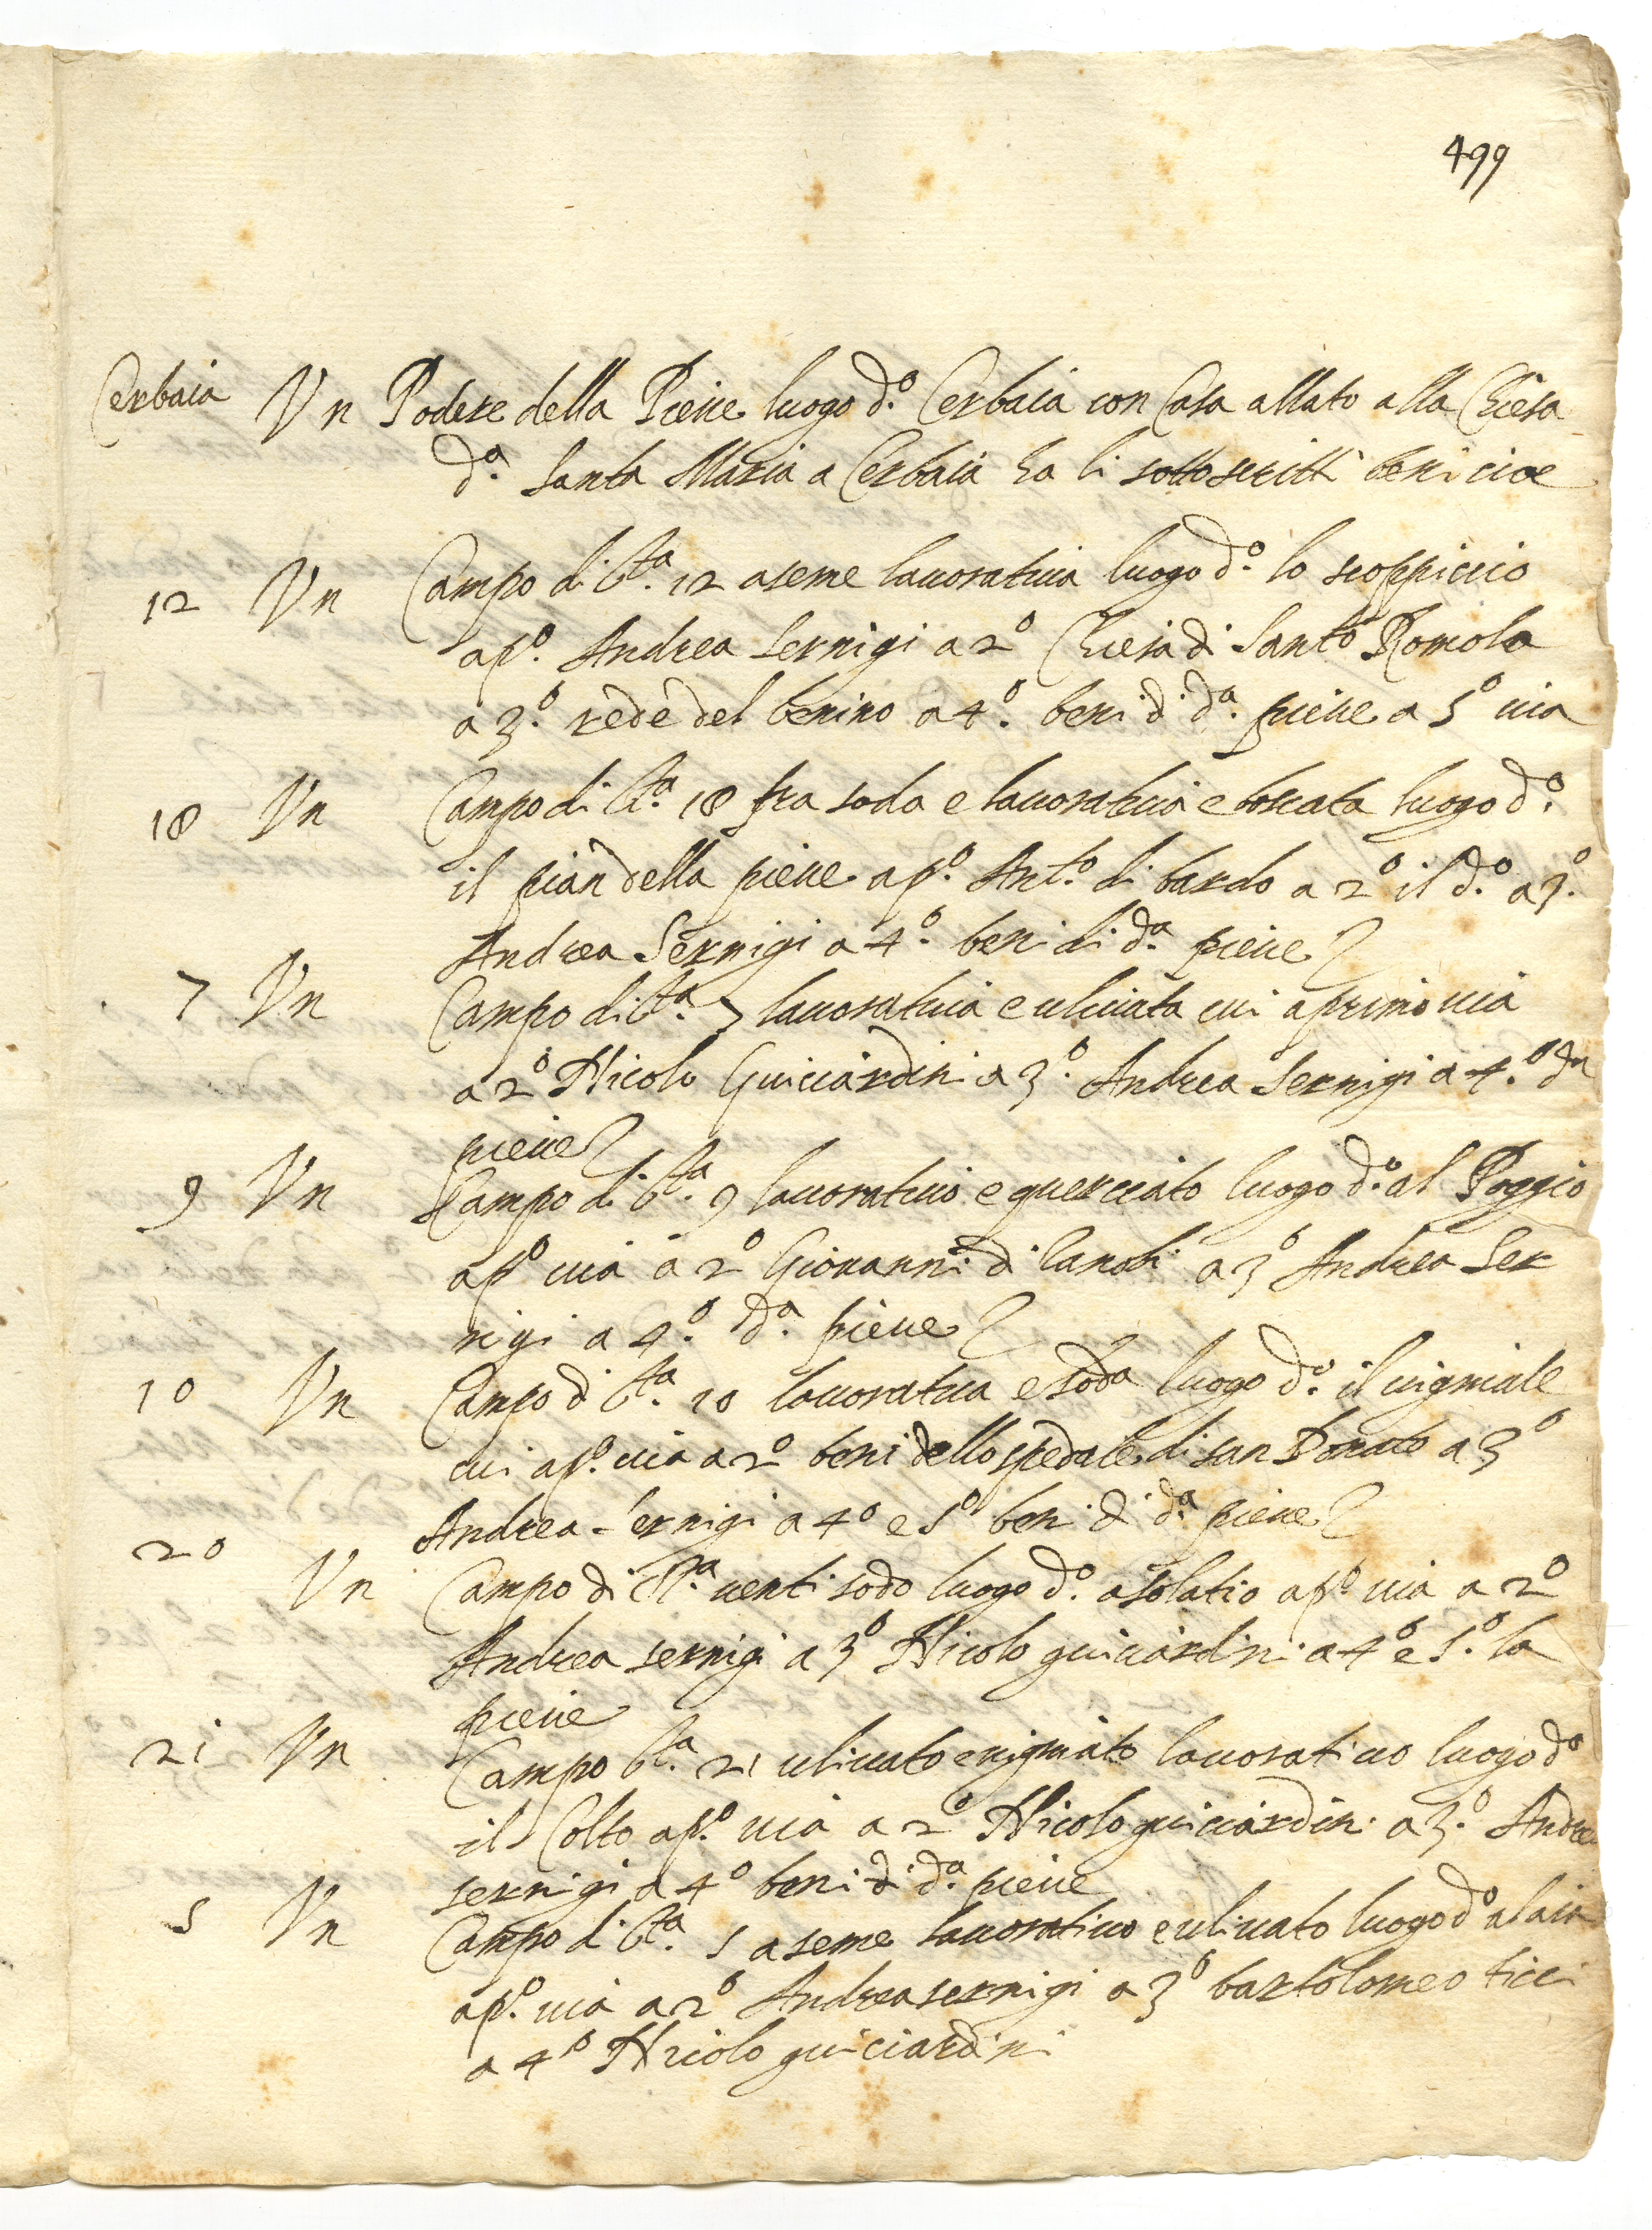 499
Cerbaia Vn Podere della Pieue luogo d.o Cerbaia con Casa allato alla Chiesa
d.a Santa Maria a Cerbaia ha li sottoscritti beni cioe
12 Vn Campo di st.a 12 aseme lauoratiua luogo d.o lo scoppiccio
a p.o Andrea Sernigi a 2o Chiesa di Santo Romolo
a 3.o rede del benino a 4.o beni di d.a pieue a 5o uia
18 Vn Campo di st.a 18 fra soda e lauoratiua e boscata luogo d.o
il pian della pieue a p.o Ant.o di bardo a 2o il d.o a 3.o
Andrea Sernigi a 4.o beni di d.a pieue
7 Vn Campo di st.a 7 lauoratiua e uliuata cui a primo uia
a 2o Nicolo Guicciardini a 3.o Andrea Sernigi a 4.o da
pieue
9 Vn Campo di st.a 9 lauoratiuo e querciato luogo d.o al Poggio
a po uia a 2o Giouanni di Zanobi a 3o Andrea Ser
nigi a 4.o d.a pieue
10 Vn Campo di st.a 10 lauoratiua e soda luogo d.o il uigniale
cui a p.o uia a 2o beni dello spedale di san Donato a 3o
Andrea Sernigi a 4o e 5o beni di d.a pieue
20 Vn Campo di st.a uenti sodo luogo d.o a solatio a po uia a 2o
Andrea sernigi a 3o Nicolo guiciardini a 4o e 5.o la
pieue
21 Vn Campo st.a 21 uliuato e uigniato lauoratiuo luogo do
il Colto a p.o uia a 2o Nicolo guicciardini a 3.o Andrea
sernigi a 4o beni di d.a pieue
5 Vn Campo di st.a 5 aseme lauoratiuo e uliuato luogo do alaia
a p.o uia a 2o Andrea sernigi a 3o bartolomeo ticci
a 4o Nicolo guiciardini